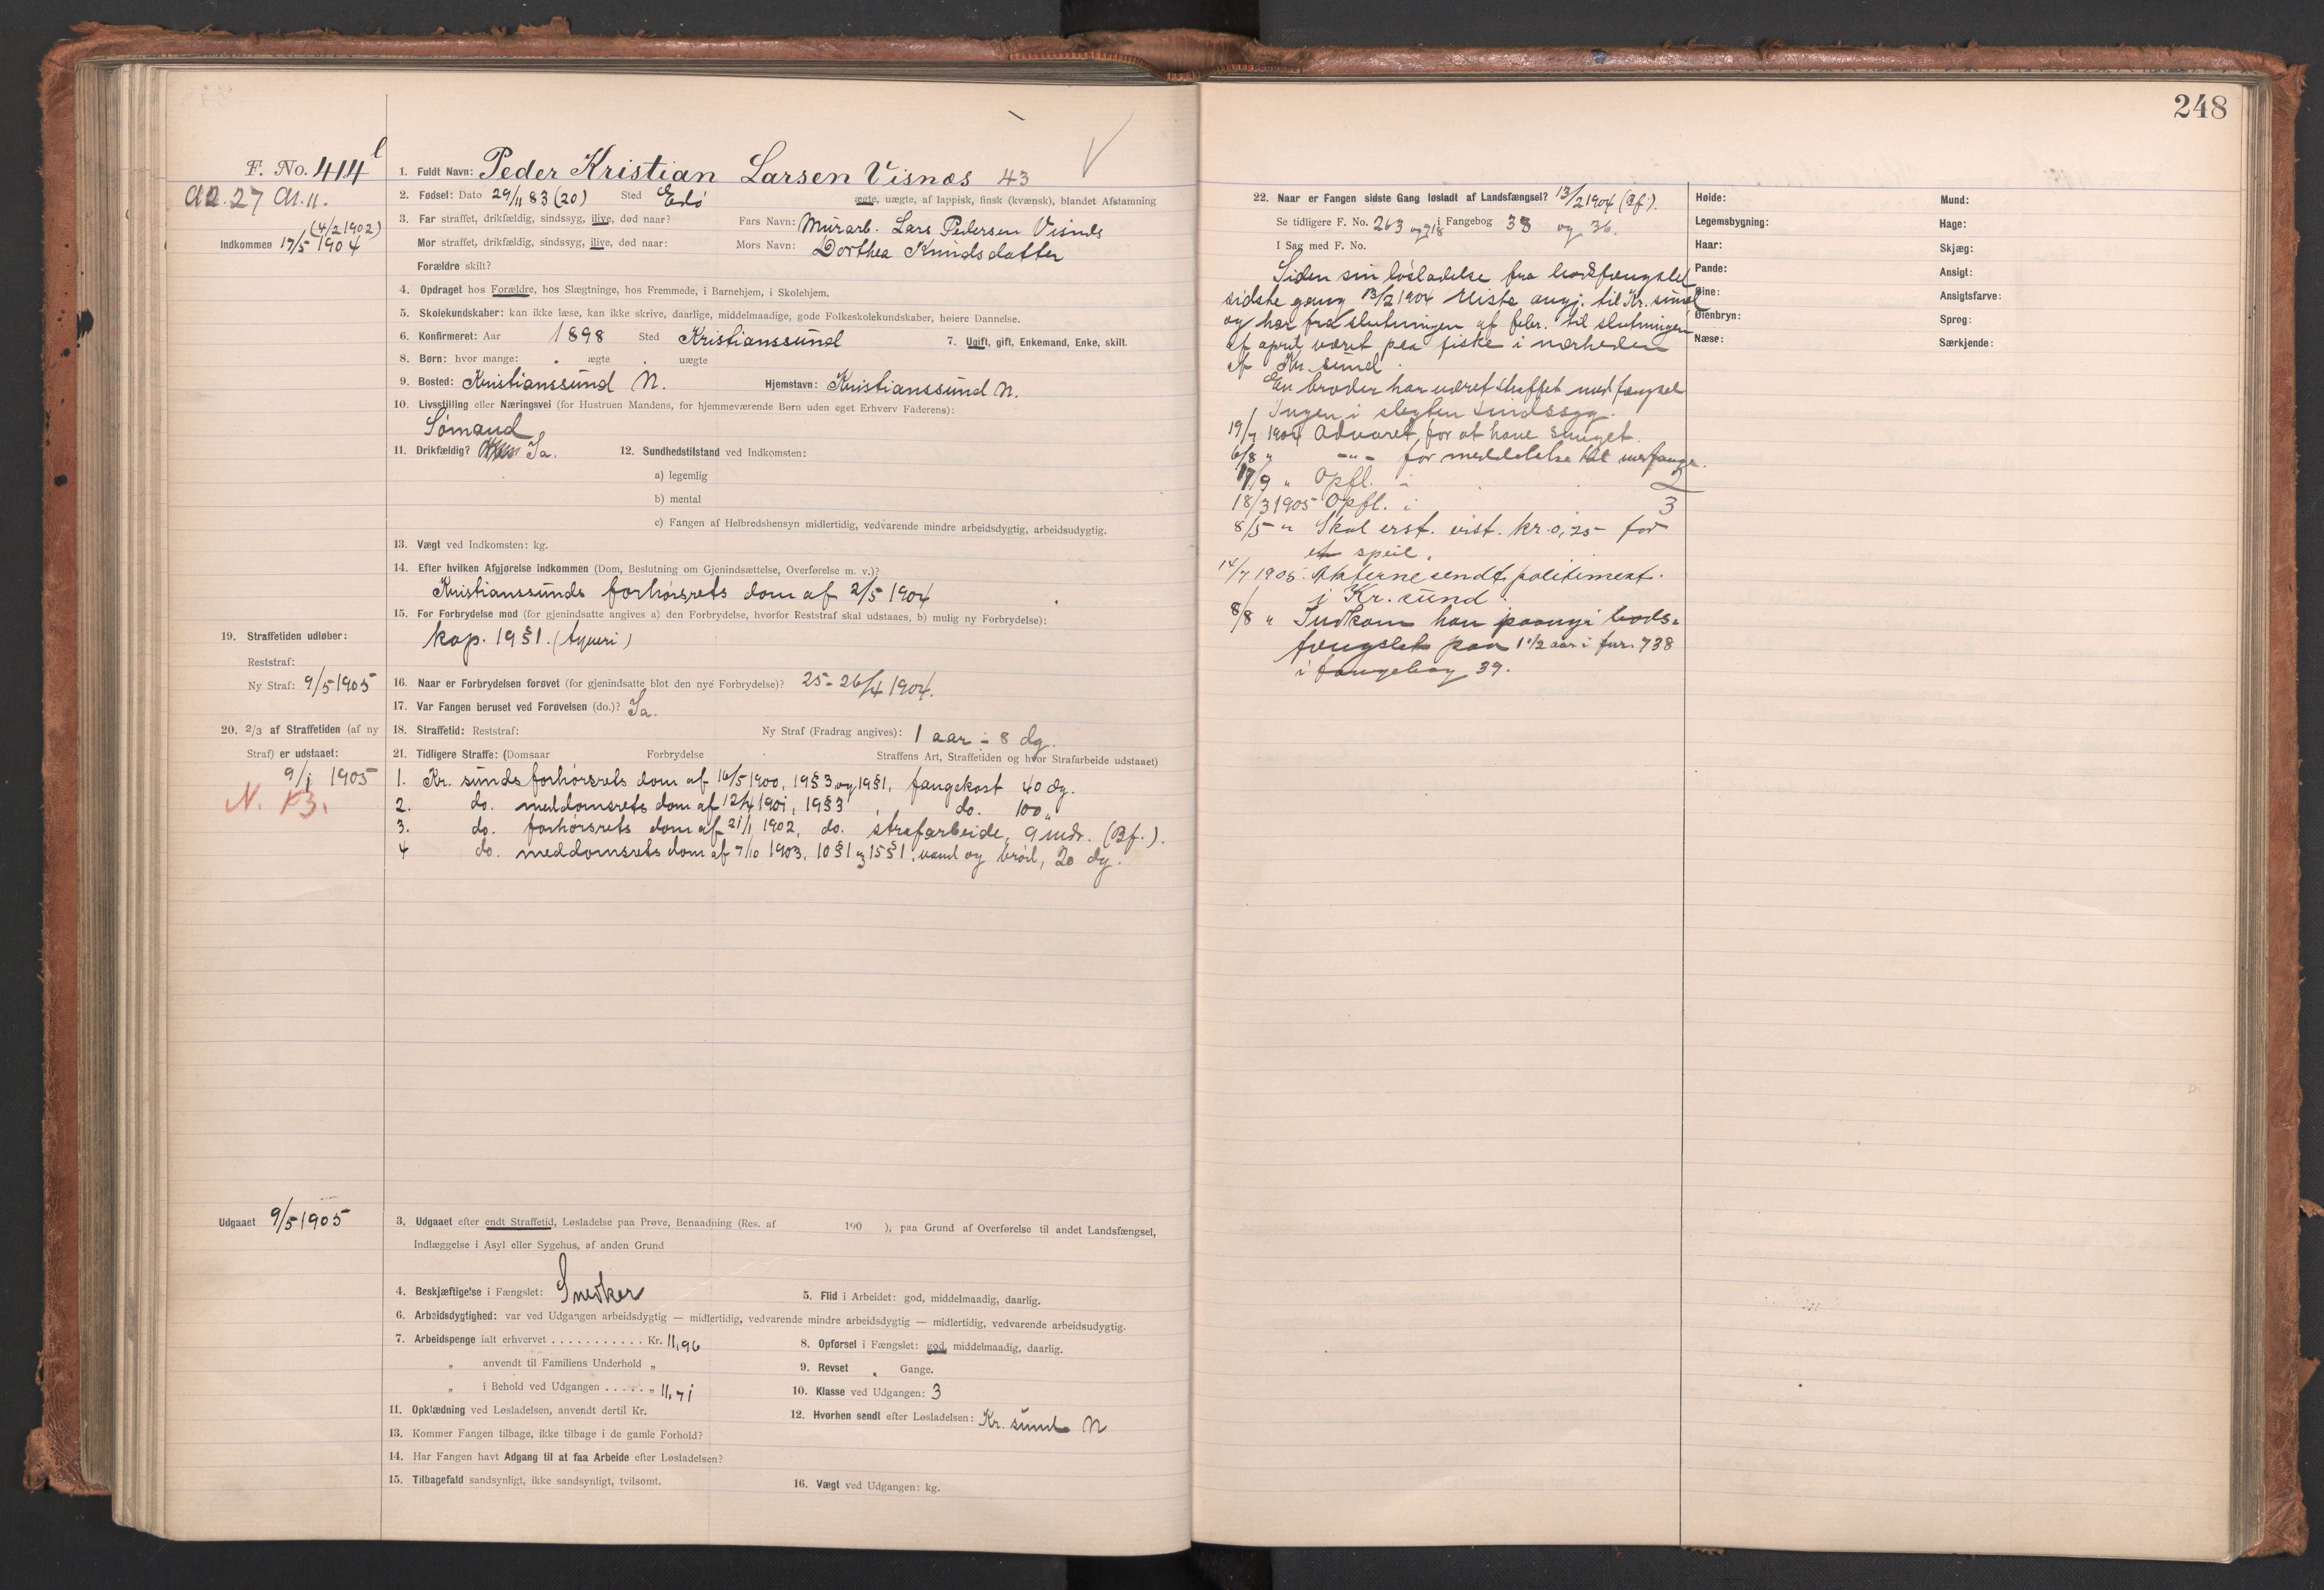 248
F. No. 414 l
A2. 27 A1. 11.
(4/2 1902)
Indkommen 17/5 1904
1. Fuldt Navn: Peder Kristian Larsen Visnæs 43
2. Fødsel: Dato 29/11 83 (20) Sted Edö ægte, uægte, af lappisk, finsk (kvænsk), blandet Afstamning
3. Far straffet, drikfældig, sindssyg, ilive, død naar? Fars Navn: Murarb. Lars Pedersen Visnæs
Mor straffet, drikfældig, sindssyg, ilive, død naar: Mors Navn: Dorthea Knudsdatter
Forældre skilt?
4. Opdraget hos Forældre, hos Slægtninge, hos Fremmede, i Barnehjem, i Skolehjem.
5. Skolekundskaber: kan ikke læse, kan ikke skrive, daarlige, middelmaadige, gode Folkeskolekundskaber, høiere Dannelse.
6. Konfirmeret: Aar 1898 Sted Kristianssund 7. Ugift, gift, Enkemand, Enke, skilt.
8. Børn: hvor mange: ægte uægte
9. Bosted: Kristianssund N. Hjemstavn: Kristianssund N.
10. Livsstilling eller Næringsvei (for Hustruen Mandens, for hjemmeværende Børn uden eget Erhverv Faderens):
Sømand
11. Drikfældig? Ja. 12. Sundhedstilstand ved Indkomsten:
a) legemlig
b) mental
c) Fangen af Helbredshensyn midlertidig, vedvarende mindre arbeidsdygtig, arbeidsudygtig.
13. Vægt ved Indkomsten: kg.
14. Efter hvilken Afgjørelse indkommen (Dom, Beslutning om Gjenindsættelse, Overførelse m. v.)?
Kristianssunds forhørsrets dom af 2/5 1904
15. For Forbrydelse mod (for gjenindsatte angives a) den Forbrydelse, hvorfor Reststraf skal udstaaes, b) mulig ny Forbrydelse):
kap. 19 § 1. (tyveri)
19. Straffetiden udløber:
Reststraf:
Ny Straf: 9/5 1905
16. Naar er Forbrydelsen forøvet (for gjenindsatte blot den nye Forbrydelse)? 25-26/4 1904.
17. Var Fangen beruset ved Forøvelsen (do.)? Ja.
20. 2/3 af Straffetiden (af ny
Straf) er udstaaet:
9/1 1905
N. F3.
18. Straffetid: Reststraf: Ny Straf (Fradrag angives): 1 aar ÷ 8 dg.
21. Tidligere Straffe: (Domsaar Forbrydelse Straffens Art, Straffetiden og hvor Strafarbeide udstaaet)
1. Kr. sunds forhørsrets dom af 16/5 1900, 19 § 3 og 19 § 1, fangekost 40 dg.
2. do. meddomsrets dom af 12/4 1901, 19 § 3 do. 100 „
3. do. forhørsrets dom af 21/1 1902, do. strafarbeide, 9 mdr. (Bf.).
4 do. meddomsrets dom af 7/10 1903, 10 § 1 og 15 § 1, vand og brød, 20 dg.
Udgaaet 9/5 1905
3. Udgaaet efter endt Straffetid, Løsladelse paa Prøve, Benaadning (Res. af 190 ); paa Grund af Overførelse til andet Landsfængsel,
Indlæggelse i Asyl eller Sygehus, af anden Grund
4. Beskjæftigelse i Fængslet: Snedker 5. Flid i Arbeidet: god, middelmaadig, daarlig.
6. Arbeidsdygtighed: var ved Udgangen arbeidsdygtig — midlertidig, vedvarende mindre arbeidsdygtig — midlertidig, vedvarende arbeidsudygtig.
7. Arbeidspenge ialt erhvervet . . . . . . . . . . . Kr. 11,96 8. Opførsel i Fængslet: god, middelmaadig, daarlig.
„ anvendt til Familiens Underhold „ 9. Revset Gange.
„ i Behold ved Udgangen . . . . . „ 11,71 10. Klasse ved Udgangen: 3
11. Opklædning ved Løsladelsen, anvendt dertil Kr. 12. Hvorhen sendt efter Løsladelsen: Kr. sund N
13. Kommer Fangen tilbage, ikke tilbage i de gamle Forhold?
14. Har Fangen havt Adgang til at faa Arbeide efter Løsladelsen?
15. Tilbagefald sandsynligt, ikke sandsynligt, tvilsomt. 16. Vægt ved Udgangen: kg.
22. Naar er Fangen sidste Gang løsladt af Landsfængsel? 13/2 1904 (Bf.).
Se tidligere F. No. 263 og 718 i Fangebog 33 og 36.
I Sag med F. No.
Siden sin løsladelse fra bodsfængslet
sidste gang 13/2 1904 reiste angj. til Kr. sund
og har fra slutningen af febr. til slutningen
af april været paa fiske i nærheden
af Kr. sund.
En broder har været straffet med fængsel
Ingen i slegten sindssyg.
19/7 1904 Advaret for at have sunget.
6/8 „ -„- for meddelelse til medfange.
17/9 „ Opfl. i 2
18/3 1905 Opfl. i 3
8/5 „ Skal erst. vist. kr. 0,25 for
et speil.
14/7 1905. Akterne sendt politimest.
i Kr. sund.
8/8 „ Indkom han paany i bods-
fængslet paa 1 1/2 aar i fnr. 738
i fangebog 39.
Høide:
Legemsbygning:
Haar:
Pande:
Øine:
Øienbryn:
Næse:
Mund:
Hage:
Skjæg:
Ansigt:
Ansigtsfarve:
Sprog:
Særkjende: